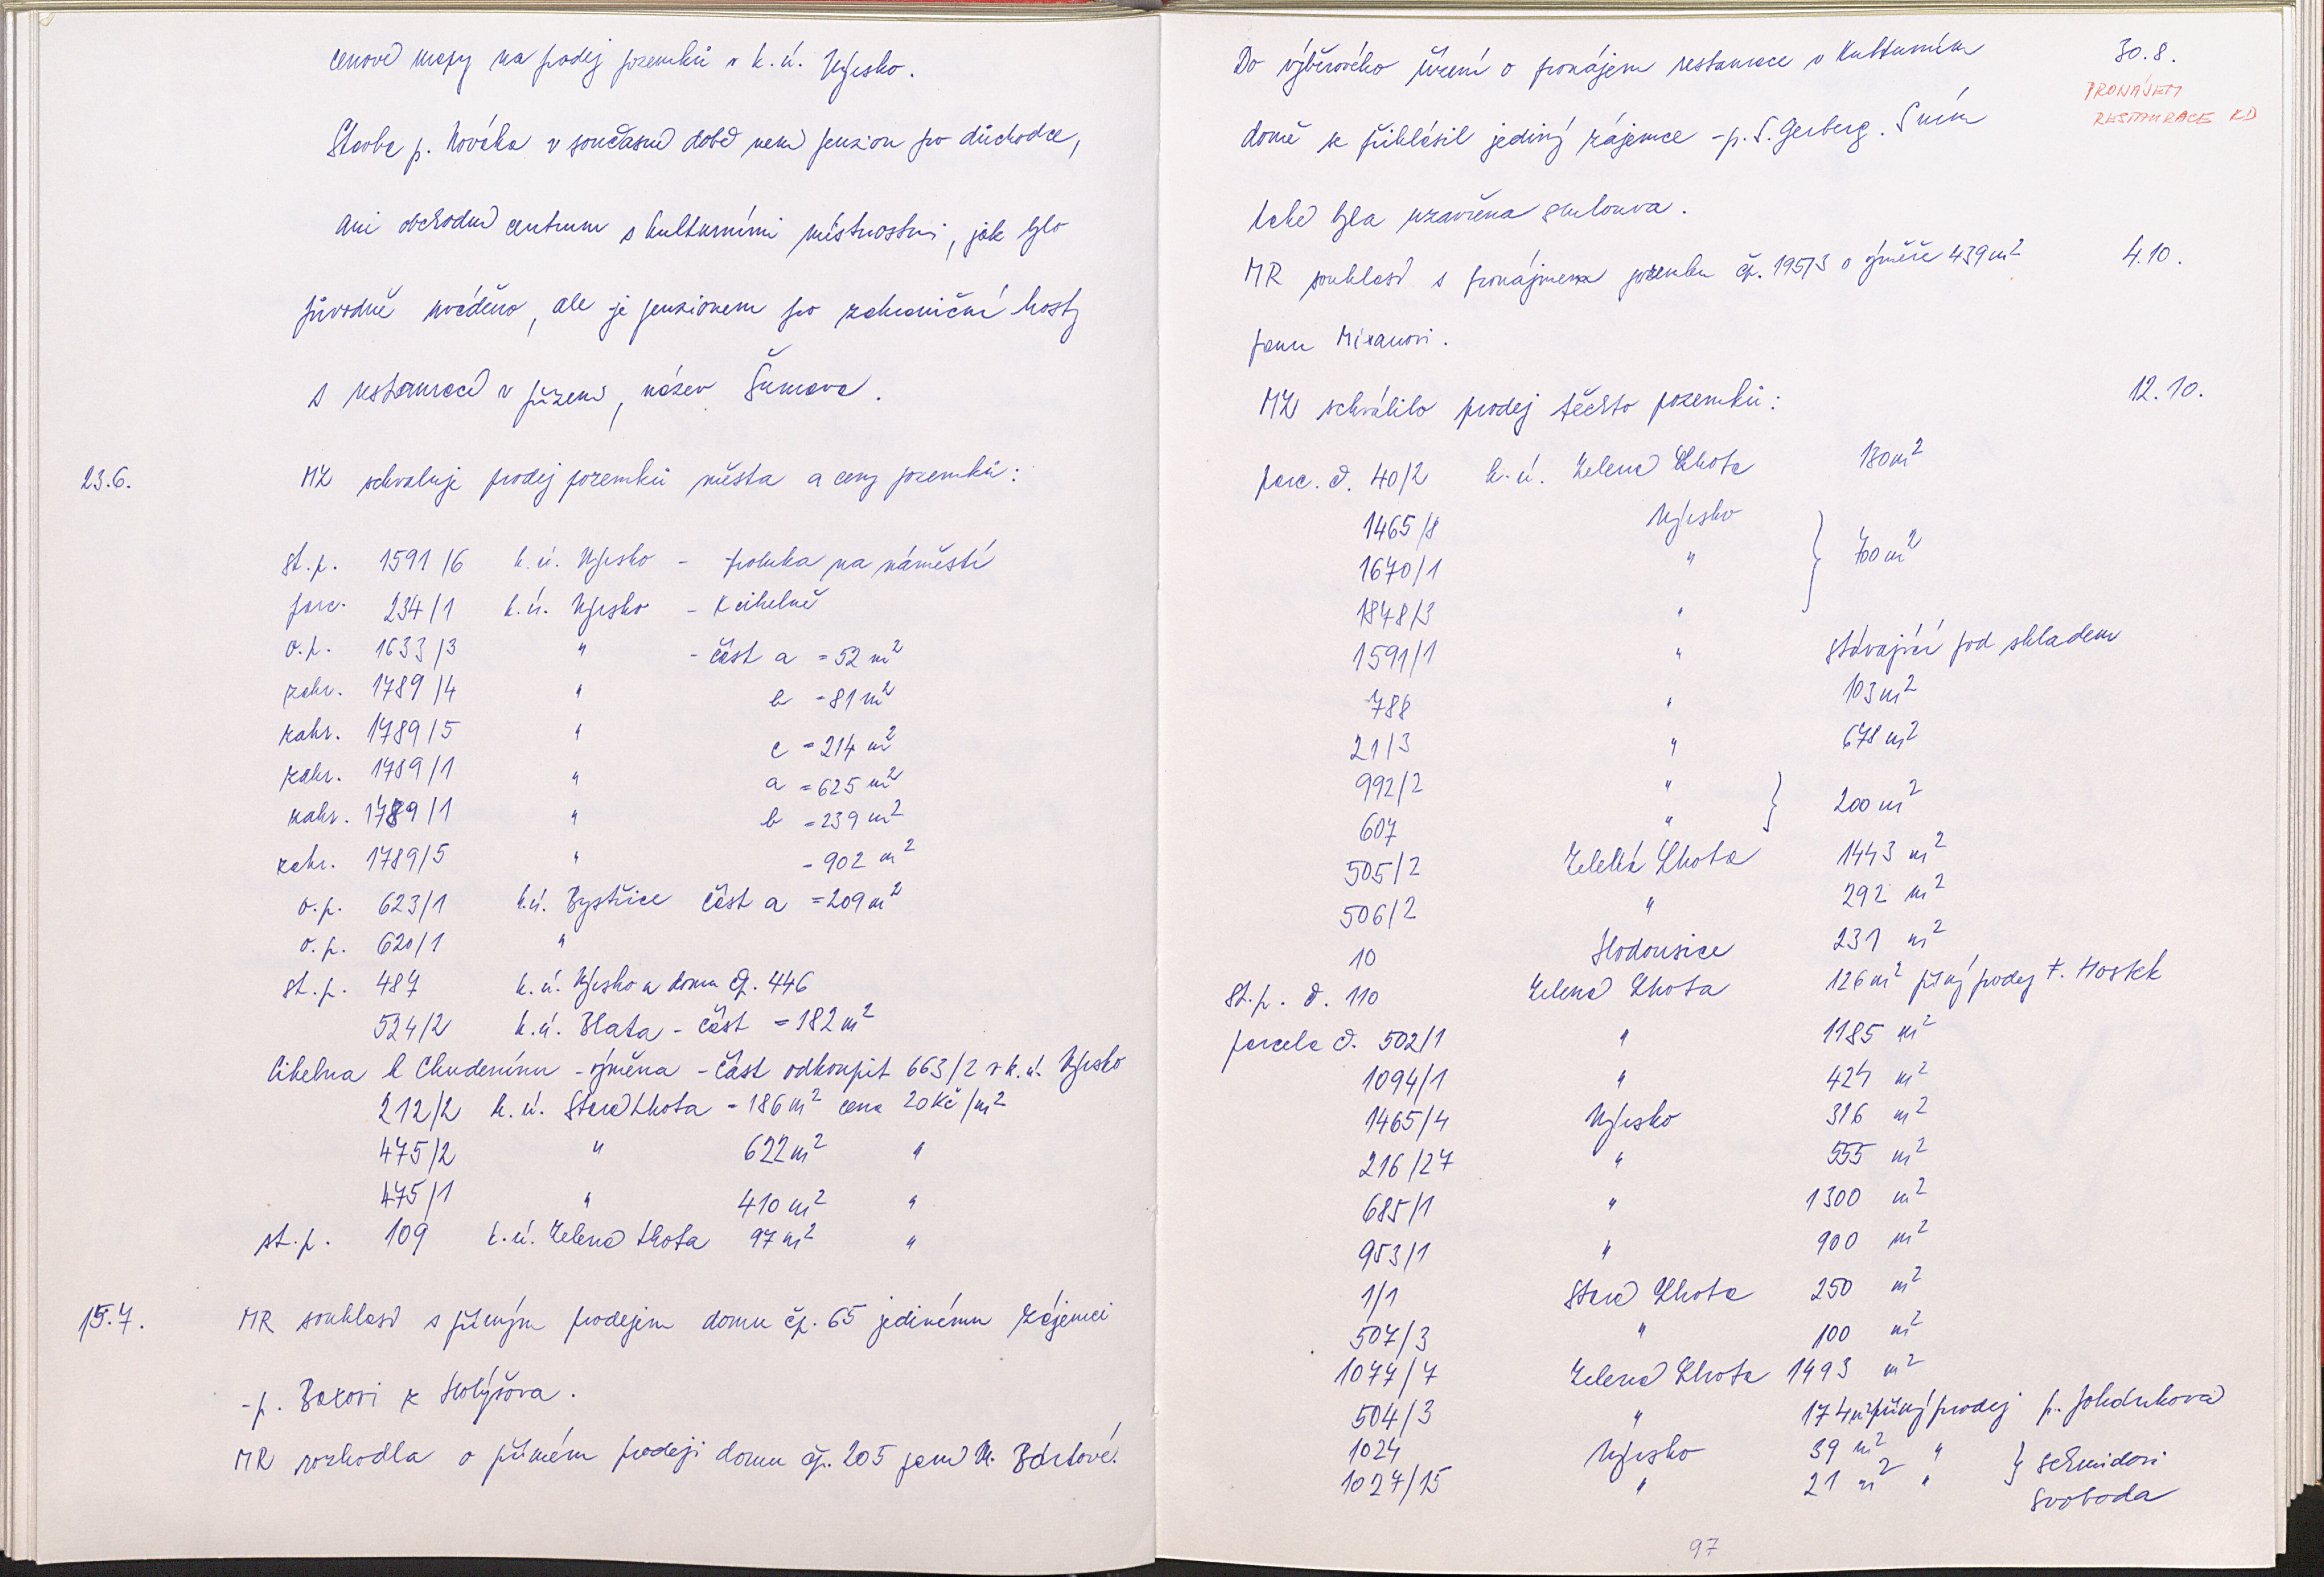 cenové mapy na prodej pozemků v k.ú. Nýrsko.
Stavba p. Nováka v současné době není penzion pro důchodce,
ani obchodní centrum s kulturními místnostmi, jak bylo
původně uváděno, ale je penzionem pro zahraniční hosty
s restaurací v přízemí, název Šumava.
23.6. MZ schvaluje prodej pozemků města a ceny pozemků:
st.p. 1591/6 k.ú. Nýrsko - proluka na náměstí
parc. 234/1 k.ú. Nýrsko - K cihelně
o.p. 1633/3 " - část a = 52 m²
zahr. 1789/4 " b = 81 m²
zahr. 1789/5 " c = 214 m²
zahr. 1789/1 " a = 625 m²
zahr. 1789/1 " b = 239 m²
zahr. 1789/5 " - 902 m²
o.p. 623/1 k.ú. Bystřice část a = 209 m²
o.p. 620/1 "
st.p. 487 k.ú. Nýrsko u domu čp. 446
524/2 k.ú. Blata - část = 182 m²
Cihelna k Chudenínu - výměna - část odkoupit 663/2 v k.ú. Nýrsko
212/2 k.ú. Stará Lhota - 186 m² cena 20 Kč/m²
475/2 " 622 m² "
475/1 " 410 m² "
st.p. 109 k.ú. Zelená Lhota 97 m² "
15.7. MR souhlasí s přímým prodejem domu čp. 65 jedinému zájemci
- p. Baxovi z Holýšova.
MR rozhodla o přímém prodeji domu čp. 205 paní M. Bártové.
Do výběrového řízení o pronájem restaurace v Kulturním 30.8.
PRONÁJEM
RESTAURACE KD
domě se přihlásil jediný zájemce - p. S. Gerberg. S ním
také byla uzavřena smlouva.
MR souhlasí s pronájmem pozemku čp. 195/3 o výměře 439 m² 4.10.
panu Mixanovi.
MZ schválilo prodej těchto pozemků: 12.10.
parc. č. 40/2 k.ú. Zelená Lhota 180 m²
1465/8 Nýrsko
1670/1 " } 700 m²
1848/3 "
1591/1 " stávající pod skladem
788 " 103 m²
21/3 " 678 m²
992/2 "
607 " } 200 m²
505/2 Zelená Lhota 1443 m²
506/2 " 292 m²
10 Hodousice 231 m²
st.p. č. 110 Zelená Lhota 126 m² přímý prodej F. Hostek
parcela č. 502/1 " 1185 m²
1094/1 " 424 m²
1465/4 Nýrsko 316 m²
216/27 " 555 m²
685/1 " 1300 m²
953/1 " 900 m²
1/1 Stará Lhota 250 m²
507/3 " 100 m²
1077/7 Zelená Lhota 1493 m²
504/3 " 174 m² přímý prodej p.
1024 Nýrsko 39 m² "
1027/15 " 21 m² " } Schmidovi
Svoboda
97